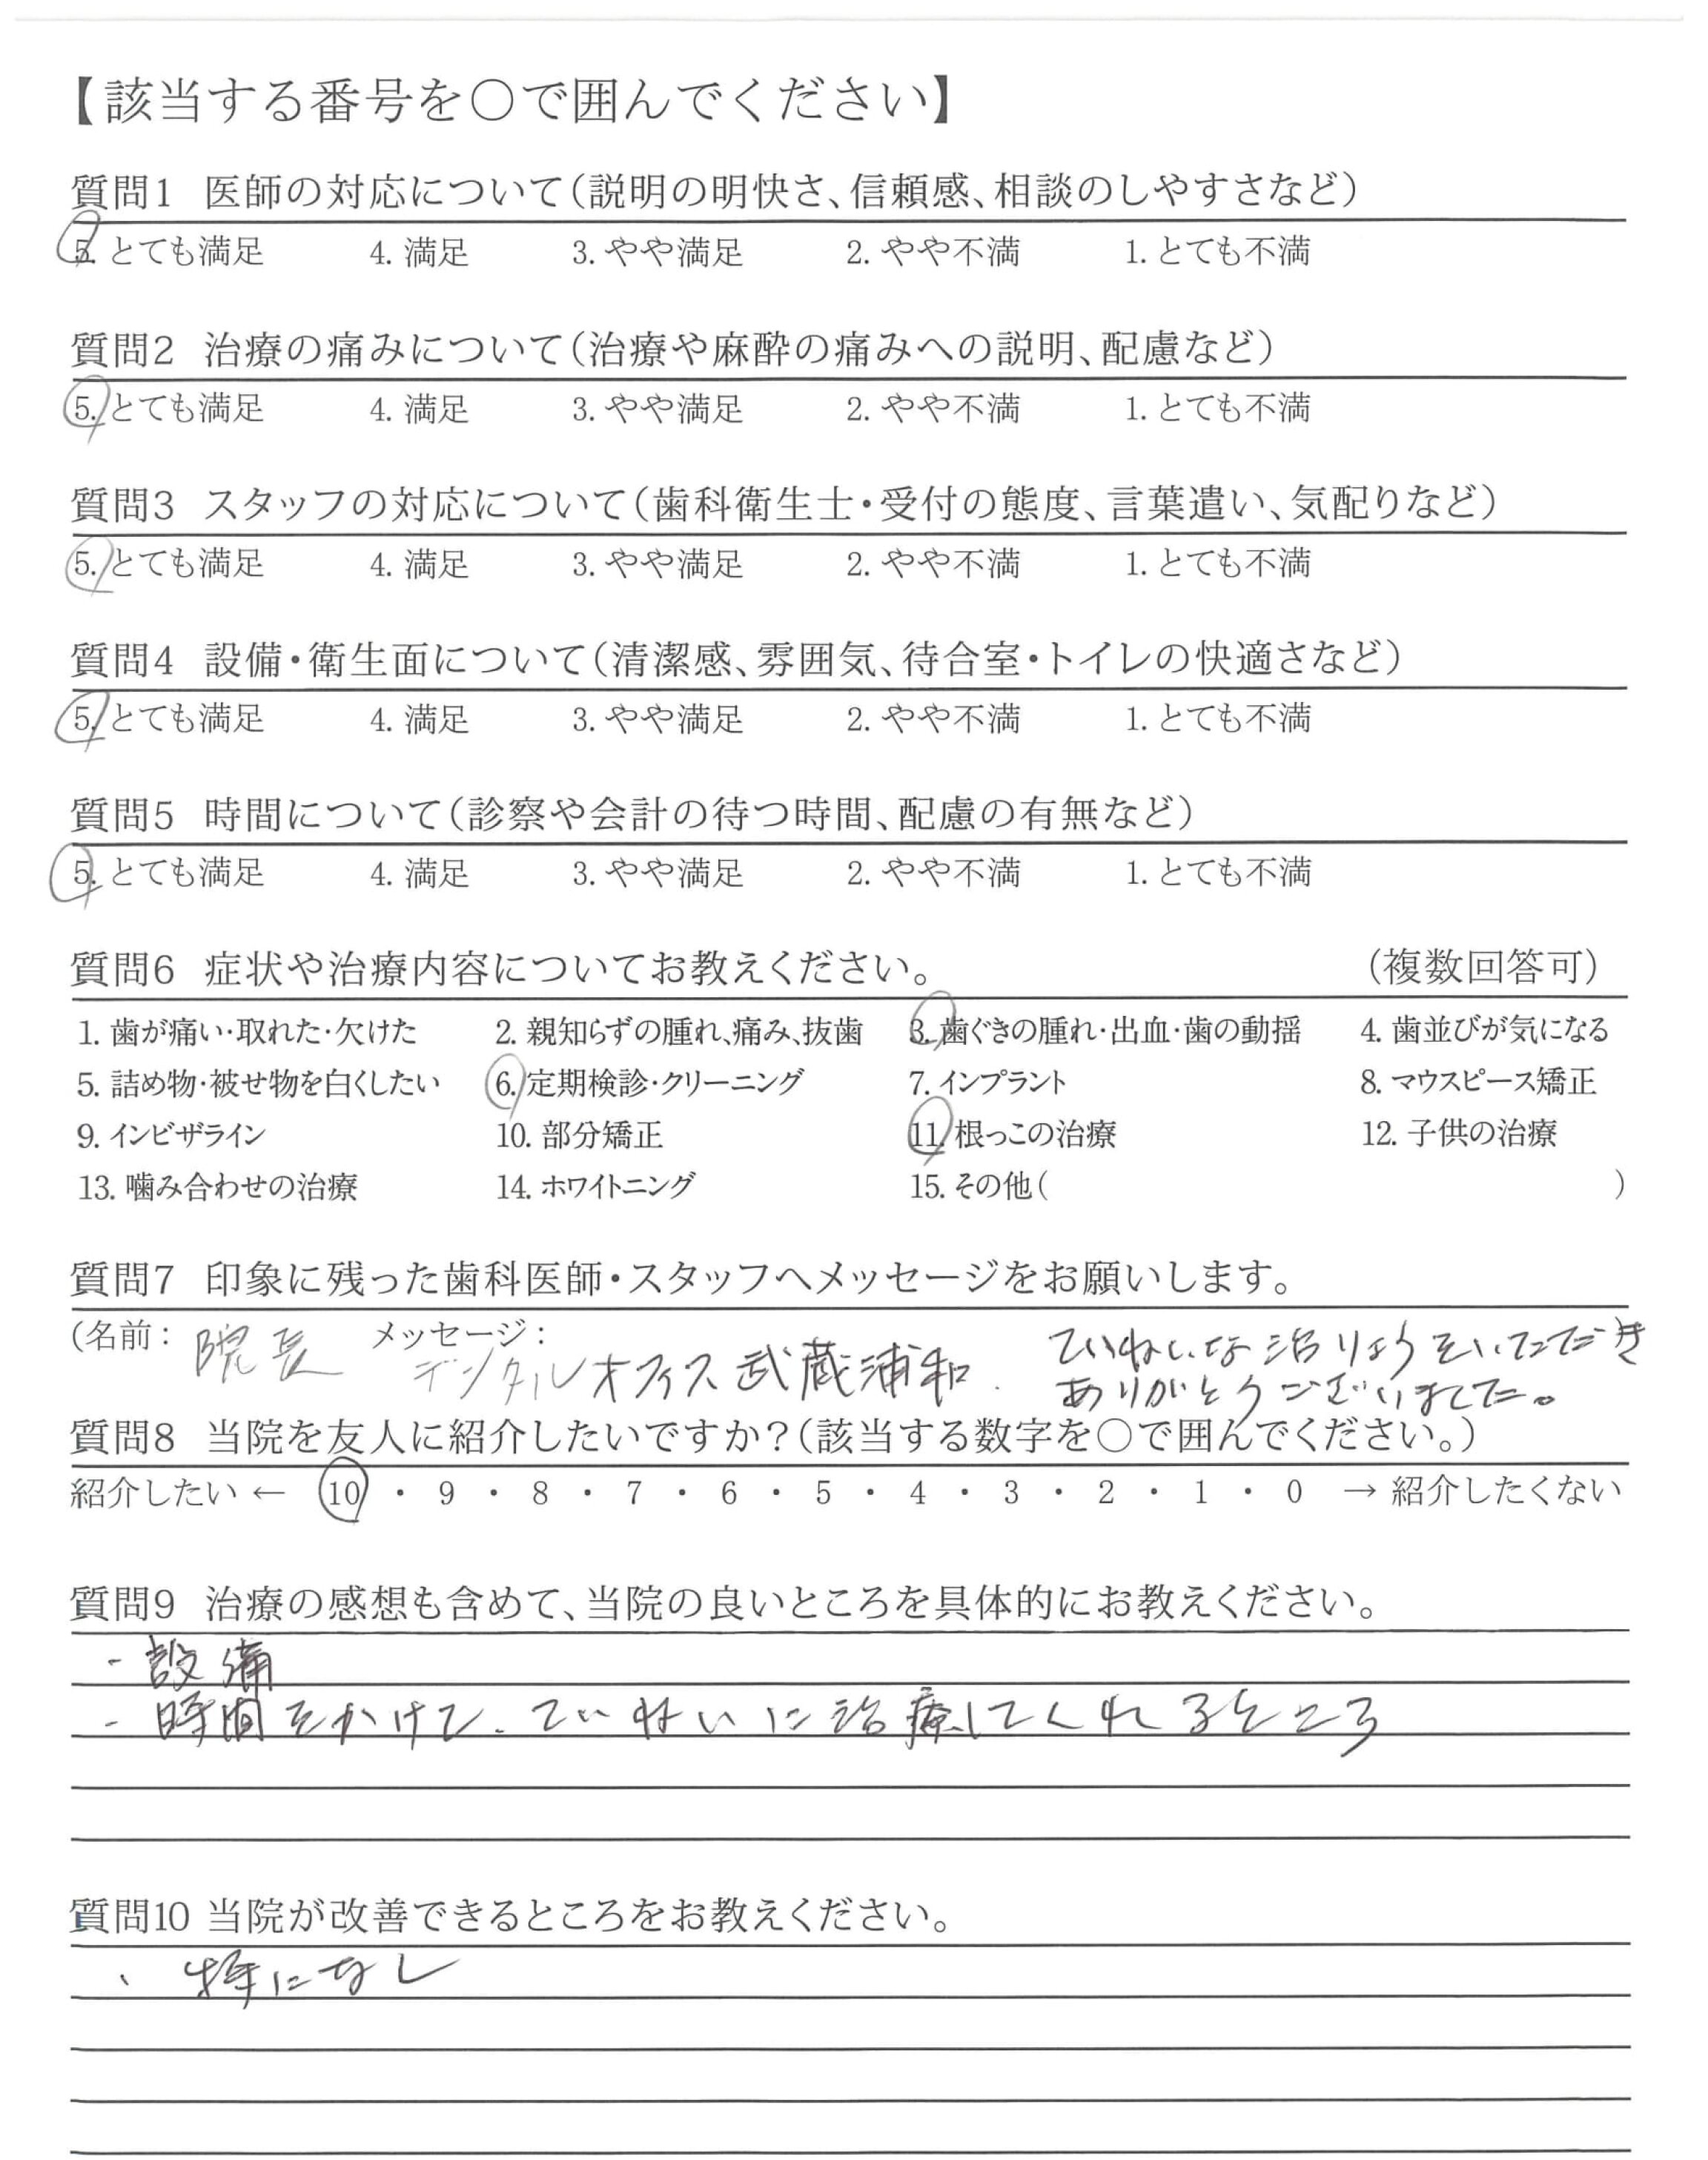 【該当する番号を○で囲んでください】
質問1 医師の対応について(説明の明快さ、信頼感、相談のしやすさなど)
5. とても満足 4. 満足 3. やや満足 2. やや不満 1. とても不満
質問2 治療の痛みについて(治療や麻酔の痛みへの説明、配慮など)
5. とても満足 4. 満足 3. やや満足 2. やや不満 1. とても不満
質問3 スタッフの対応について(歯科衛生士・受付の態度、言葉遣い、気配りなど)
5. とても満足 4. 満足 3. やや満足 2. やや不満 1. とても不満
質問4 設備・衛生面について(清潔感、雰囲気、待合室・トイレの快適さなど)
5. とても満足 4. 満足 3. やや満足 2. やや不満 1. とても不満
質問5 時間について(診察や会計の待つ時間、配慮の有無など)
5. とても満足 4. 満足 3. やや満足 2. やや不満 1. とても不満
質問6 症状や治療内容についてお教えください。 (複数回答可)
1. 歯が痛い・取れた・欠けた 2. 親知らずの腫れ、痛み、抜歯 3. 歯ぐきの腫れ・出血・歯の動揺 4. 歯並びが気になる
5. 詰め物・被せ物を白くしたい 6. 定期検診・クリーニング 7. インプラント 8. マウスピース矯正
9. インビザライン 10. 部分矯正 11. 根っこの治療 12. 子供の治療
13. 噛み合わせの治療 14. ホワイトニング 15. その他( )
質問7 印象に残った歯科医師・スタッフへメッセージをお願いします。
(名前: 院長 メッセージ: デンタルオフィス武蔵浦和. ていねいな治りょうをいただき
ありがとうございました。
質問8 当院を友人に紹介したいですか?(該当する数字を○で囲んでください。)
紹介したい ← 10 ・ 9 ・ 8 ・ 7 ・ 6 ・ 5 ・ 4 ・ 3 ・ 2 ・ 1 ・ 0 → 紹介したくない
質問9 治療の感想も含めて、当院の良いところを具体的にお教えください。
・設備
・時間をかけて、ていねいに治療してくれるところ
質問10 当院が改善できるところをお教えください。
、特になし